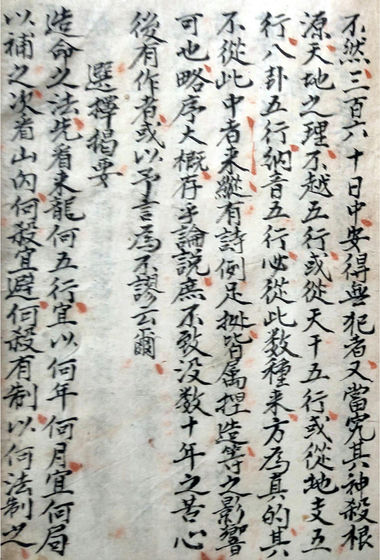 不然三百六十日中安得無犯者又當究其神殺根
源天地之理不越五行或從天干五行或從地支五
行八卦五行納音五行必從此数種来方為真的其
不從此中者来縱有詩例足㨿皆属捏造等之影響
可也略序大概存乎論說庶不致没数十年之苦心
後有作者或以予言為不謬云爾
選擇揭要
造命之法先看来龍何五行宜以何年何月宜何局
以補之次看山內何殺宜避何殺有制以何法制之